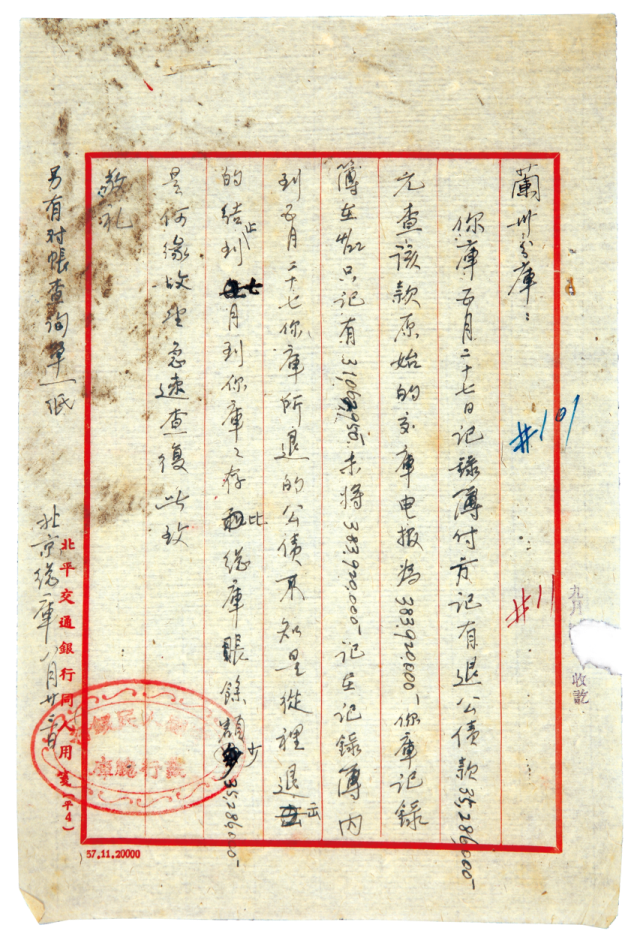 蘭州分庫：
你庫五月二十七日記錄簿付方記有退公債款35,286,000-
元查該款原始的交庫电报為383,920,000-你庫記錄
簿在 只記有 未将383,920,000-記在記錄簿内
到五月二十七你庫所退的公债不知是從裡退出
的結止到七月到你庫之存比總庫賬餘額少35,286,000-
是何缘故望急速查復此致
敬礼
另有对帳查询单一紙
北京總庫八月廿三日
#101
#11
九月
收訖
北平交通銀行同人用箋（平4）
57.11.20000
發行總庫